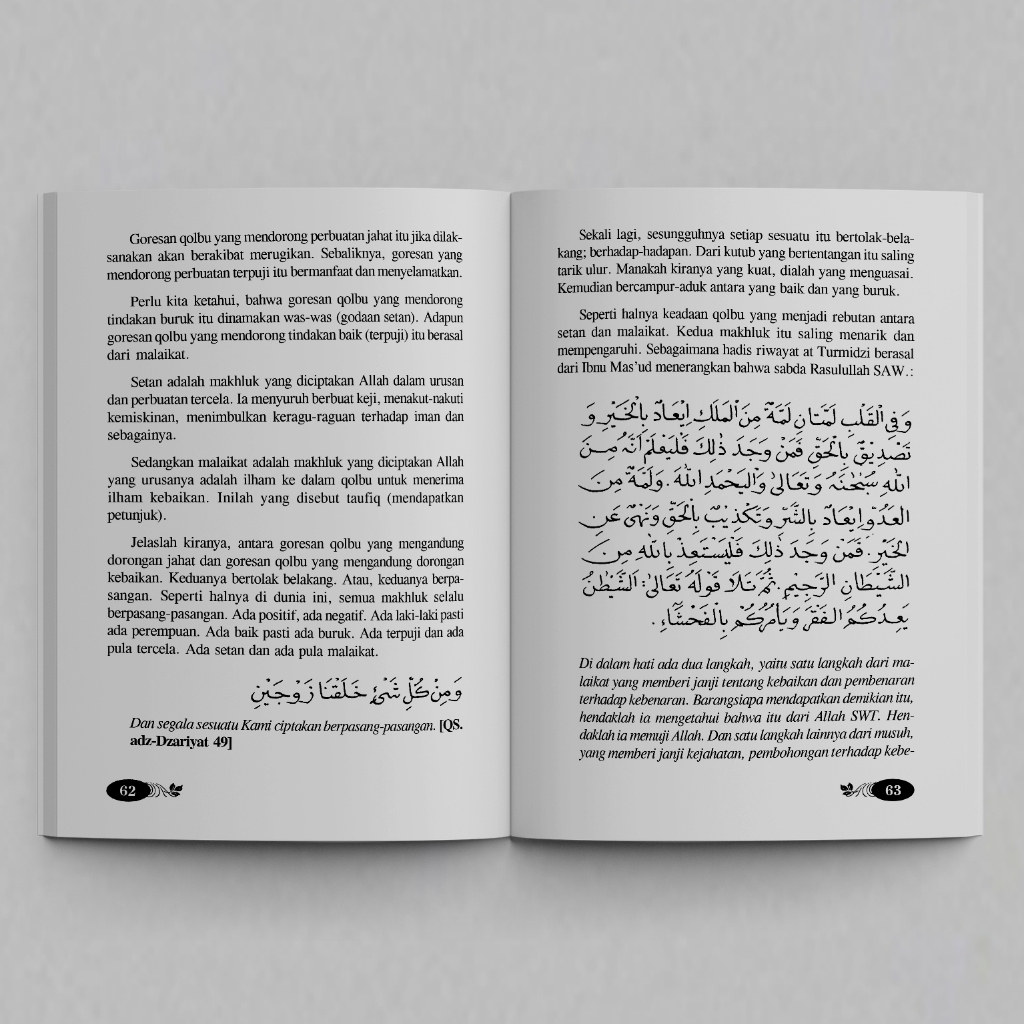 Goresan qolbu yang mendorong perbuatan jahat itu jika dilak-
sanakan akan berakibat merugikan. Sebaliknya, goresan yang
mendorong perbuatan terpuji itu bermanfaat dan menyelamatkan.
Perlu kita ketahui, bahwa goresan qolbu yang mendorong
tindakan buruk itu dinamakan was-was (godaan setan). Adapun
goresan qolbu yang mendorong tindakan baik (terpuji) itu berasal
dari malaikat.
Setan adalah makhluk yang diciptakan Allah dalam urusan
dan perbuatan tercela. Ia menyuruh berbuat keji, menakut-nakuti
kemiskinan, menimbulkan keragu-raguan terhadap iman dan
sebagainya.
Sedangkan malaikat adalah makhluk yang diciptakan Allah
yang urusanya adalah ilham ke dalam qolbu untuk menerima
ilham kebaikan. Inilah yang disebut taufiq (mendapatkan
petunjuk).
Jelaslah kiranya, antara goresan qolbu yang mengandung
dorongan jahat dan goresan qolbu yang mengandung dorongan
kebaikan. Keduanya bertolak belakang. Atau, keduanya berpa-
sangan. Seperti halnya di dunia ini, semua makhluk selalu
berpasang-pasangan. Ada positif, ada negatif. Ada laki-laki pasti
ada perempuan. Ada baik pasti ada buruk. Ada terpuji dan ada
pula tercela. Ada setan dan ada pula malaikat.
وَمِنْ كُلِّ شَيْءٍ خَلَقْنَا زَوْجَيْنِ
Dan segala sesuatu Kami ciptakan berpasang-pasangan. [QS.
adz-Dzariyat 49]
62
Sekali lagi, sesungguhnya setiap sesuatu itu bertolak-bela-
kang; berhadap-hadapan. Dari kutub yang bertentangan itu saling
tarik ulur. Manakah kiranya yang kuat, dialah yang menguasai.
Kemudian bercampur-aduk antara yang baik dan yang buruk.
Seperti halnya keadaan qolbu yang menjadi rebutan antara
setan dan malaikat. Kedua makhluk itu saling menarik dan
mempengaruhi. Sebagaimana hadis riwayat at Turmidzi berasal
dari Ibnu Mas'ud menerangkan bahwa sabda Rasulullah SAW.:
وَفِي الْقَلْبِ لَمَّتَانِ لَمَّةٌ مِنَ الْمَلَكِ إِيْعَادٌ بِالْخَيْرِ وَ
تَصْدِيْقٌ بِالْحَقِّ فَمَنْ وَجَدَ ذٰلِكَ فَلْيَعْلَمْ أَنَّهُ مِنَ
اللّٰهِ سُبْحٰنَهُ وَتَعَالٰى وَالْيَحْمَدِ اللّٰهَ. وَلَمَّةٌ مِنَ
الْعَدُوِّ إِيْعَادٌ بِالشَّرِّ وَتَكْذِيْبٌ بِالْحَقِّ وَنَهْىٌ عَنِ
الْخَيْرِ. فَمَنْ وَجَدَ ذٰلِكَ فَلْيَسْتَعِذْ بِاللّٰهِ مِنَ
الشَّيْطَانِ الرَّجِيْمِ. ثُمَّ تَلَا قَوْلَهُ تَعَالٰى: الشَّيْطٰنُ
يَعِدُكُمُ الْفَقْرَ وَيَأْمُرُكُمْ بِالْفَحْشَاءِ.
Di dalam hati ada dua langkah, yaitu satu langkah dari ma-
laikat yang memberi janji tentang kebaikan dan pembenaran
terhadap kebenaran. Barangsiapa mendapatkan demikian itu,
hendaklah ia mengetahui bahwa itu dari Allah SWT. Hen-
daklah ia memuji Allah. Dan satu langkah lainnya dari musuh,
yang memberi janji kejahatan, pembohongan terhadap kebe-
63